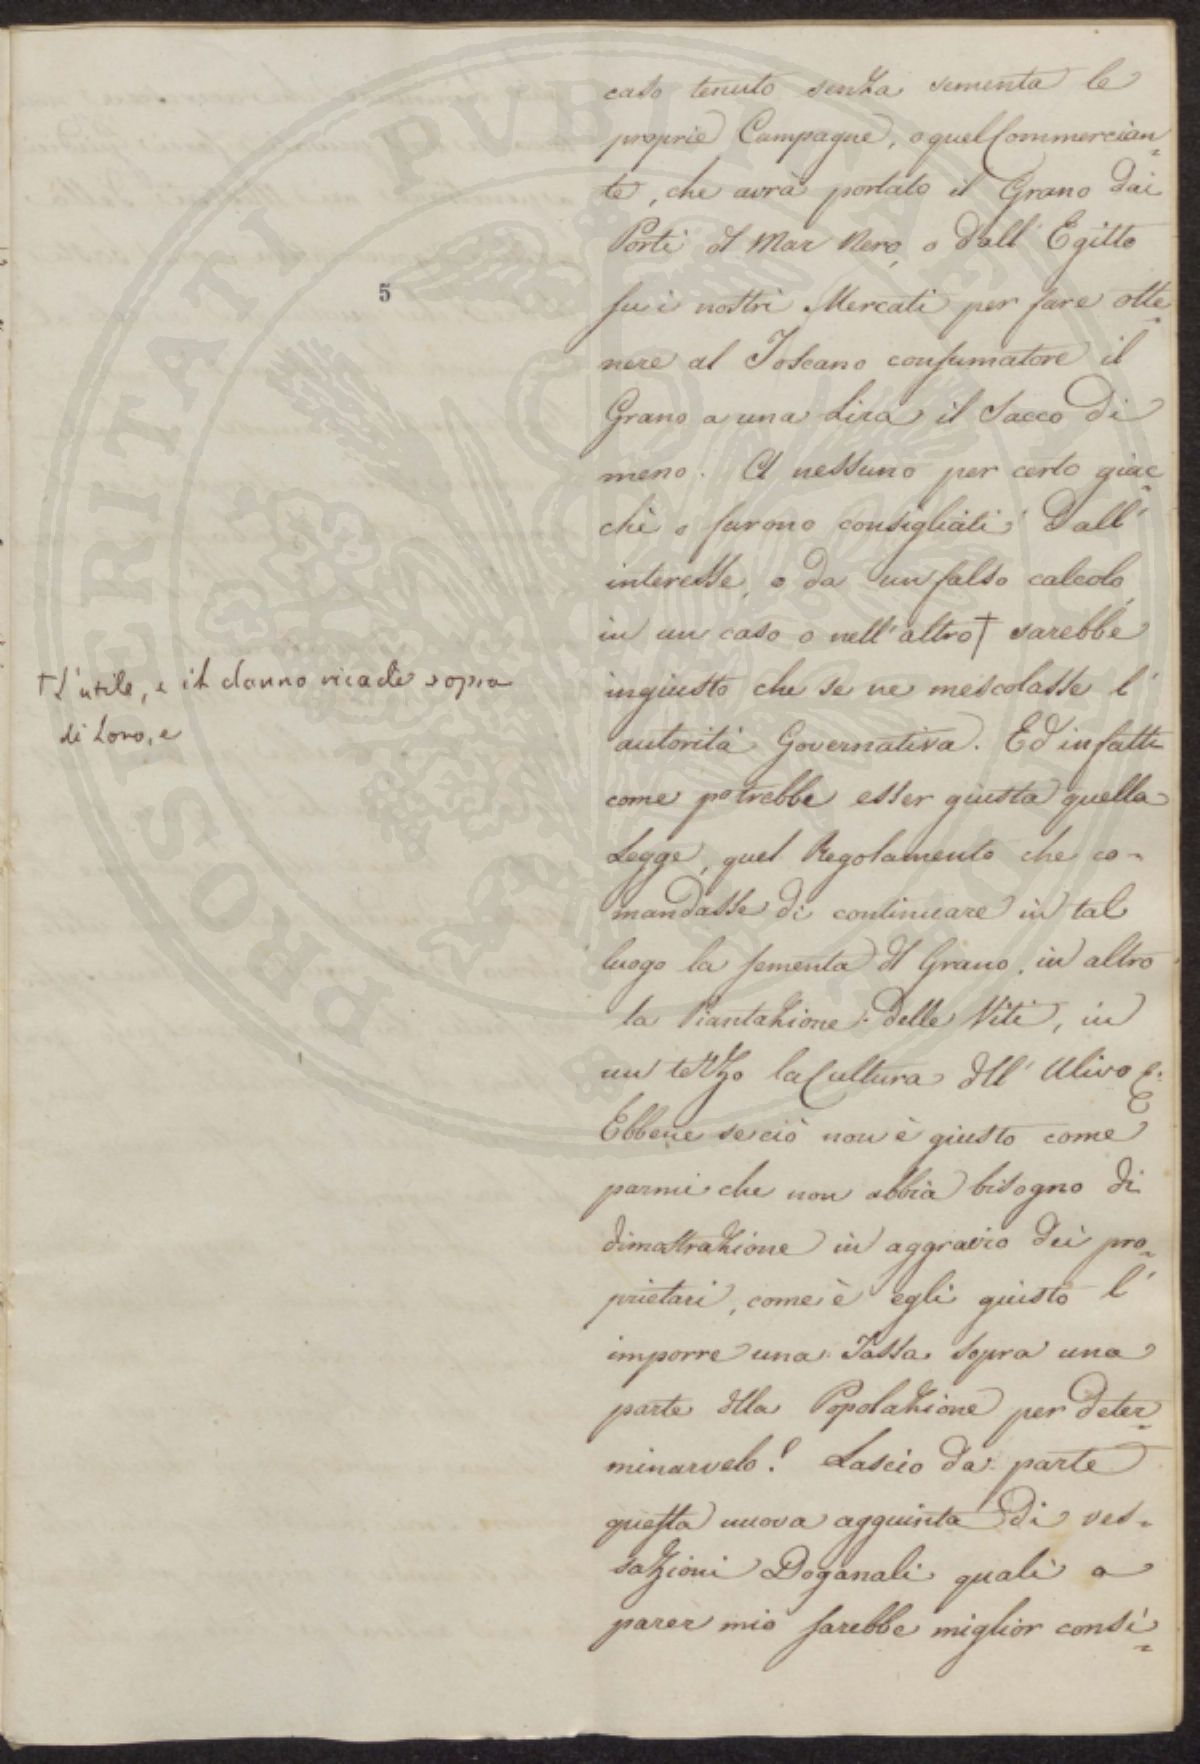 caso tenuto senza sementa le
proprie Campagne, o quel Commercian=
te, che avrà portato il Grano dai
Porti del Mar Nero, o dall' Egitto
su i nostri Mercati per fare otte=
nere al Toscano consumatore il
Grano a una Lira il Sacco di
meno. A nessuno per certo giac=
chè o furono consigliati dall'
interesse, o da un falso calcolo,
in un caso o nell'altro † sarebbe
ingiusto che se ne mescolasse l'
autorità Governativa. Ed infatti
come potrebbe esser giusta quella
Legge, quel Regolamento che co=
mandasse di continuare in tal
luogo la sementa del Grano, in altro
la Piantazione delle Viti, in
un terzo la Cultura dell' Ulivo &.
Ebbene se ciò non è giusto come
parmi che non abbia bisogno di
dimostrazione in aggravio dei pro=
prietari, come è egli giusto l'
imporre una Tassa sopra una
parte della Popolazione per deter=
minarvelo? Lascio da parte
questa nuova aggiunta di ves=
sazioni Doganali quali a
parer mio sarebbe miglior consi=
5
† L'utile, e il danno ricade sopra
di Loro, e
PROSPERITATI PVBLICAE AVGENDAE